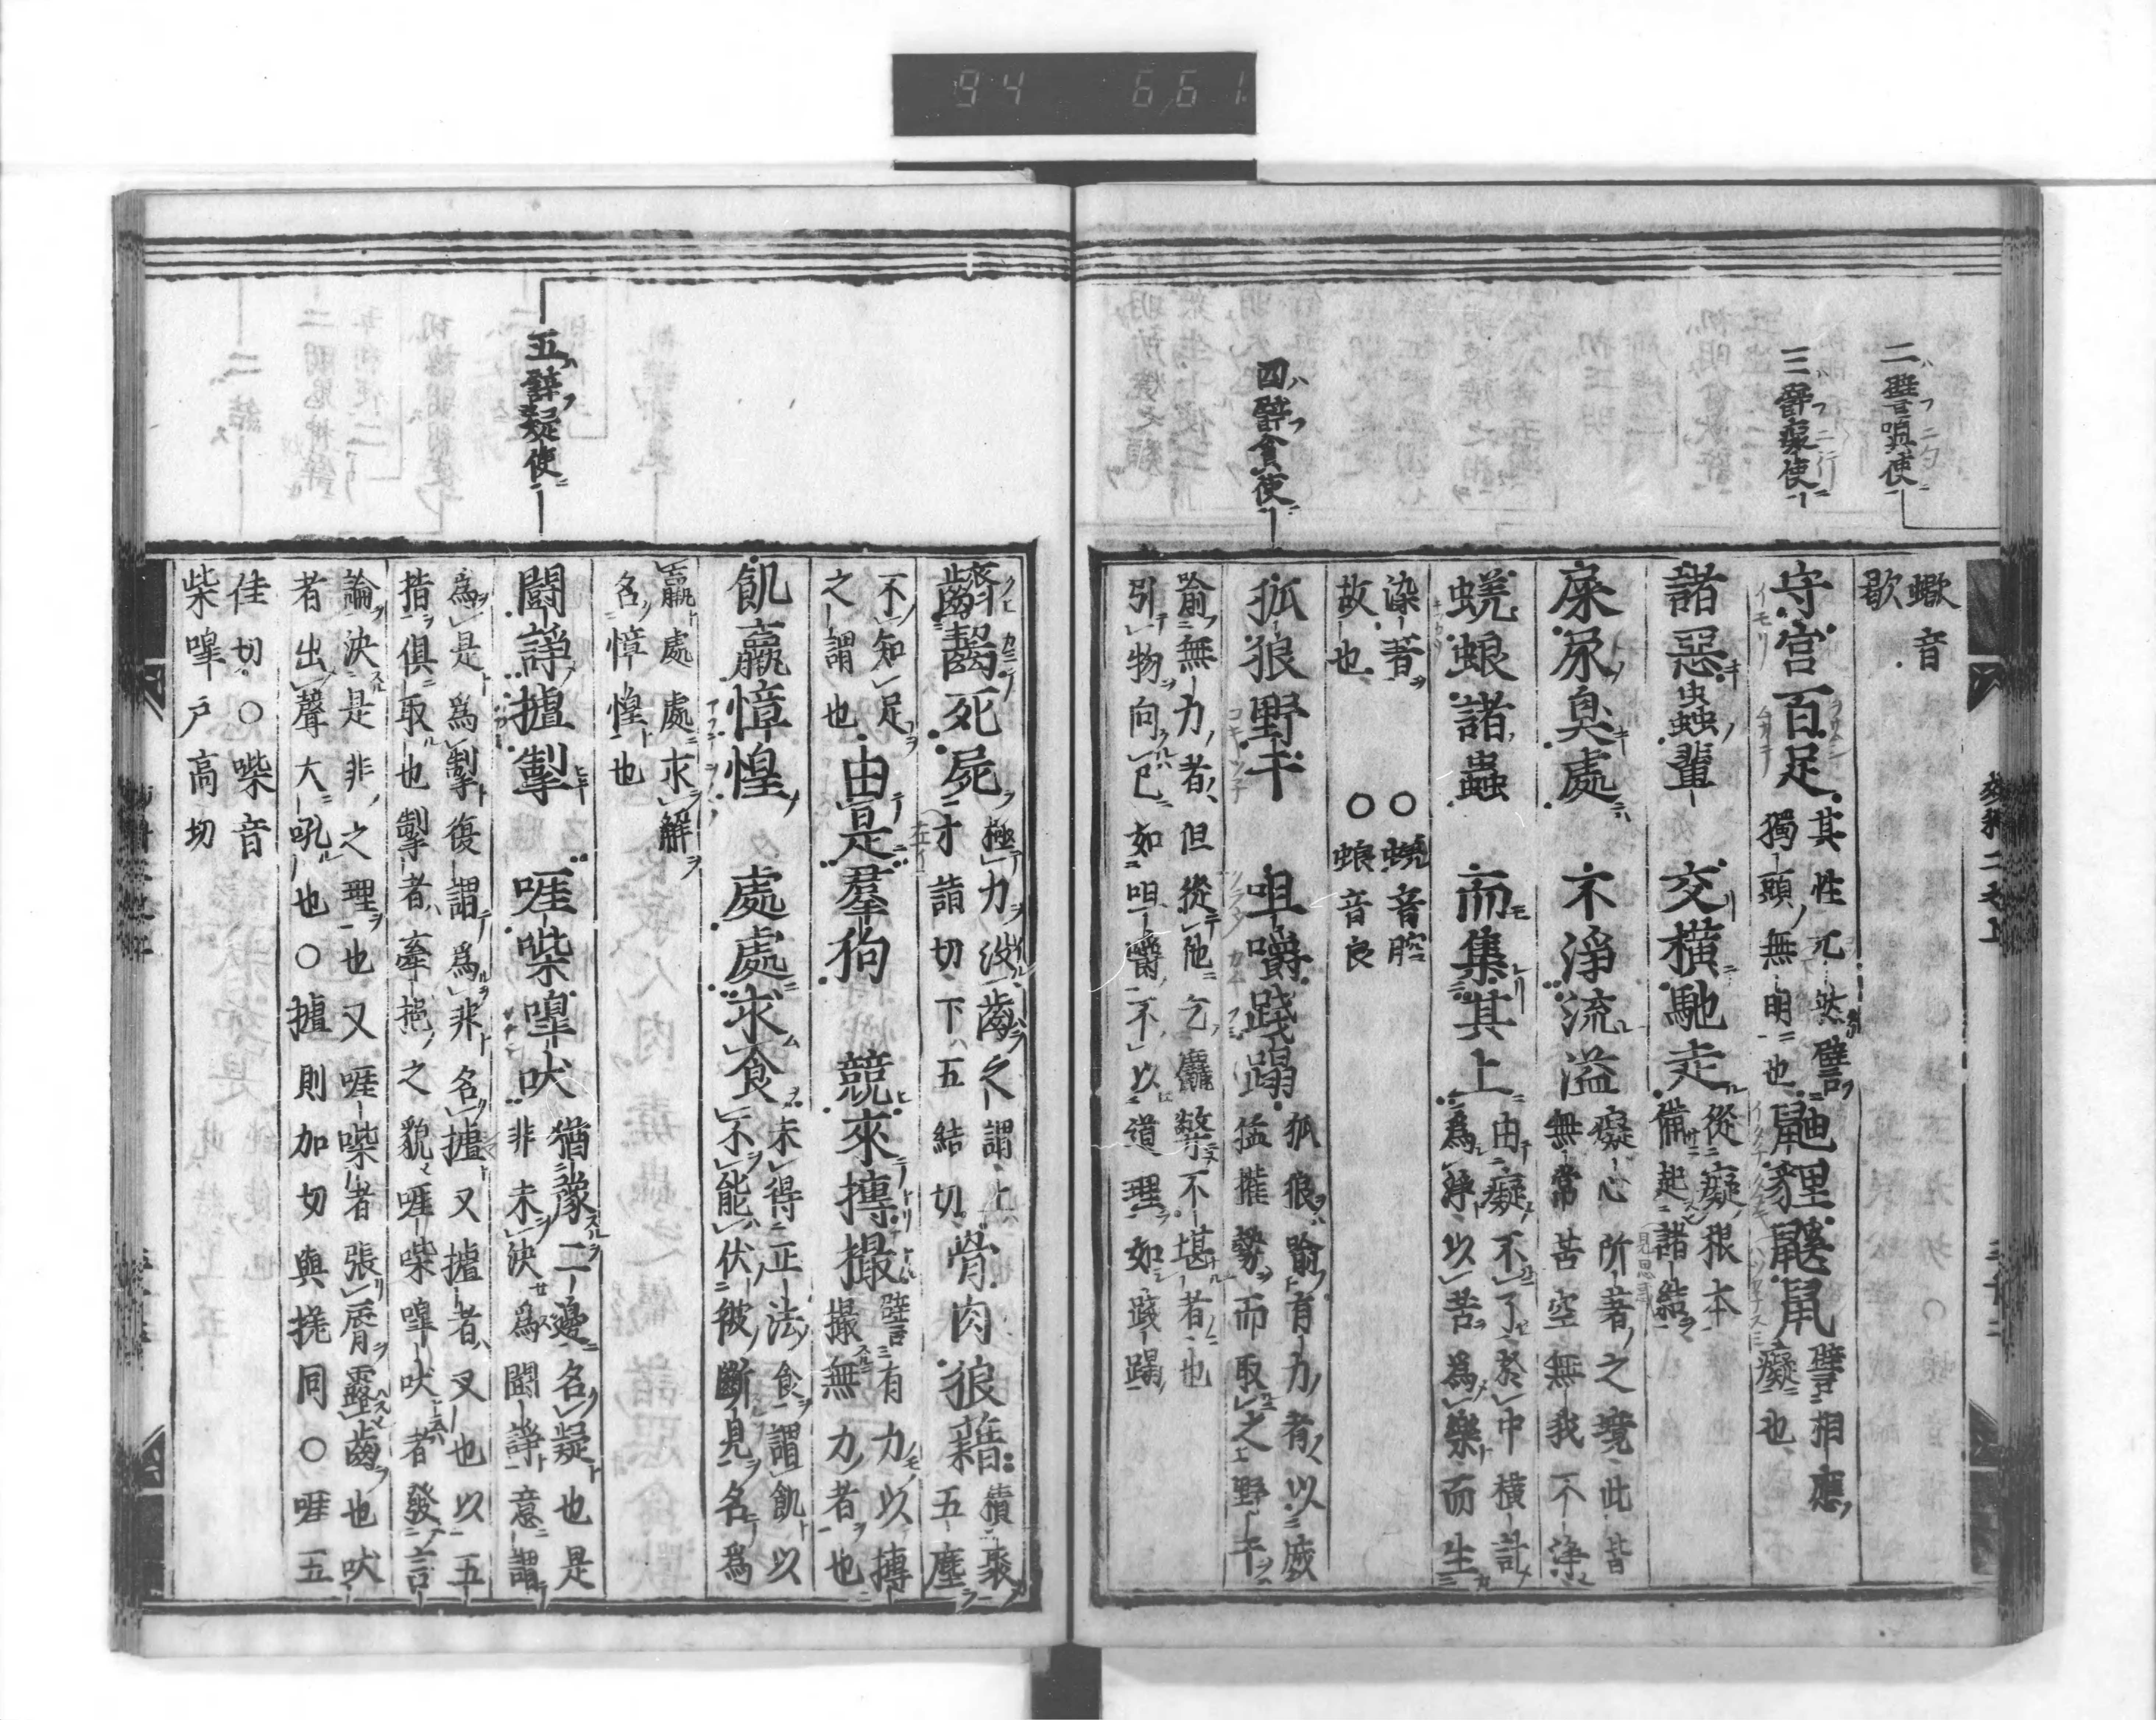 94 661
二譬嗔使
三譬癡使
四譬貪使
五譬疑使
蠍音
歇
守宮百足其性兀然譬
獨頭無明也鼬狸鼷鼠譬相應
癡也
諸惡虫蟲輩　交橫馳走從癡根本
備起諸結
屎尿臭處　不淨流溢癡心所著之境此皆
無常苦空無我不淨
蜣蜋諸蟲　而集其上由癡不了於中橫計
為淨以苦為樂而生
染著　○蜣音腔
故也　○蜋音良
狐狼野干　咀嚼踐蹋狐狼喻有力者以威
猛摧勢而取之野干
喻無力者但從他乞麤弊不堪者也
引物向己如咀嚼不以道理如踐蹋
嚌齧死屍極力沒齒之謂上
才詣切下五結切骨肉狼藉積聚
五塵
不知足
之謂也由是羣狗　競來搏撮譬有力以搏
撮無力者也
飢羸慞惶　處處求食未得正法食謂飢以
不能伏彼斷見名為
羸處處求解
名慞惶也
鬪諍摣掣　啀喍嘷吠猶豫二邊名疑也是
非未決為鬪諍意謂
為是為掣復謂為非名摣又摣者叉也以五
指俱取也掣者牽挽之貌啀喍嘷吠者發言
論決是非之理也又啀喍者張唇露齒也吠
者出聲大吼也○摣則加切與抯同○啀五
佳切○喍音
柴嘷戶高切